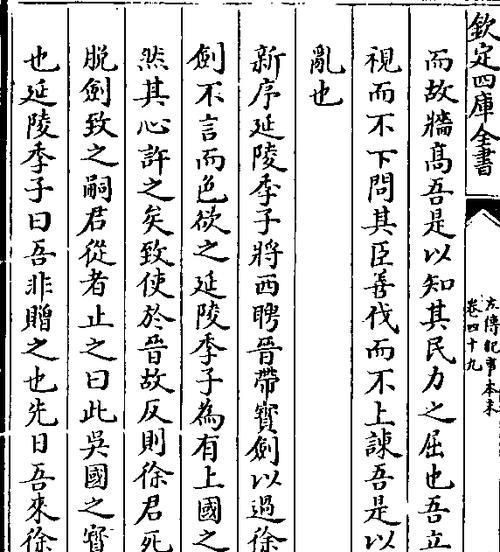 欽定四庫全書
左傳紀事本末
卷四十九
而故牆髙吾是以知其民力之屈也吾立
視而不下問其臣善伐而不上諫吾是以
亂也
新序延陵季子將西聘晉帶寳劍以過徐
劍不言而色欲之延陵季子為有上國之
然其心許之矣致使於晉故反則徐君死
脱劍致之嗣君從者止之曰此吳國之寳
也延陵季子曰吾非贈之也先日吾來徐